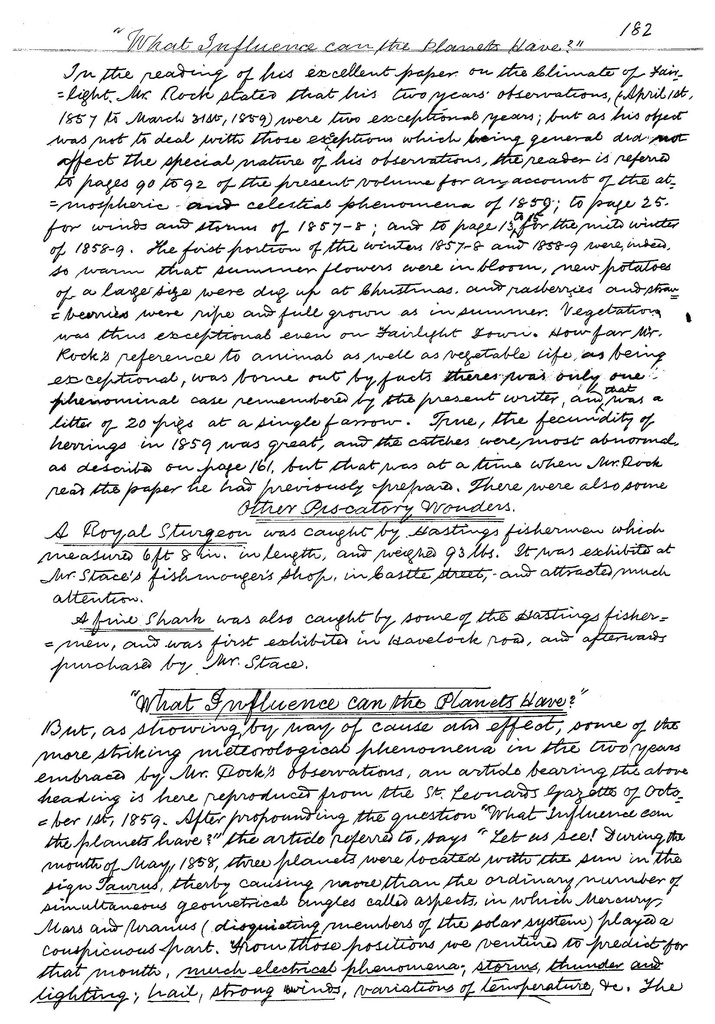 182
"What Influence can the Planets Have?"
In the reading of his excellent paper on the Climate of Fair-
=light, Mr. Rock stated that his two years' observations, (April 1st,
1857 to March 31st, 1859) were two exceptional years; but as his object
was not to deal with those exceptions which being general did not
affect the special nature of his observations, the reader is referred
to pages 90 to 92 of the present volume for any account of the at-
=mospheric and celestial phenomena of 1859; to page 25
for winds and storms of 1857-8; and to page 13 to 15 for the mild winter
of 1858-9. The first portion of the winters 1857-8 and 1858-9 were, indeed,
so warm that summer flowers were in bloom, new potatoes
of a large size were dug up at Christmas, and rasberries and straw-
=berries were ripe and full grown as in summer. Vegetation
was thus exceptional even on Fairlight Down. How far Mr.
Rock's reference to animal as well as vegetable life, as being
exceptional, was borne out by facts theres was only one
phenominal case remembered by the present writer, and that was a
litter of 20 pigs at a single farrow. True, the fecundity of
herrings in 1859 was great, and the catches were most abnormal,
as described on page 161, but that was at a time when Mr. Rock
read the paper he had previously prepared. There were also some
Other Piscatory Wonders.
A Royal Sturgeon was caught by Hastings fishermen which
measured 6ft 8 in. in length, and weighed 93 lbs. It was exhibited at
Mr. Stace's fishmonger's shop, in Castle street, and attracted much
attention.
A fine Shark was also caught by some of the Hastings fisher-
=men, and was first exhibited in Havelock road, and afterwards
purchased by Mr. Stace.
"What Influence can the Planets Have?"
But, as showing, by way of cause and effect, some of the
more striking meteorological phenomena in the two years
embraced by Mr. Rock's observations, an article bearing the above
heading is here reproduced from the St. Leonards Gazette of Octo-
=ber 1st, 1859. After propounding the question "What Influence can
the planets have?" the article referred to, says "Let us see! During the
month of May, 1858, three planets were located with the sun in the
sign Taurus, therby causing more than the ordinary number of
simultaneous geometrical angles called aspects, in which Mercury,
Mars and Uranus (disquieting members of the solar system) played a
conspicuous part. From those positions we ventured to predict for
that month, much electrical phenomena; storms, thunder and
lighting; hail, strong winds, variations of temperature, &c. The